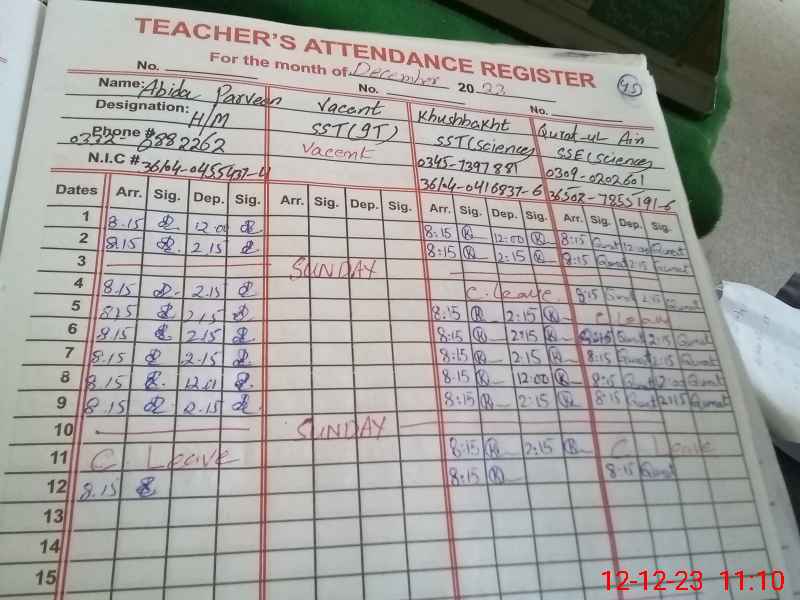 TEACHER'S ATTENDANCE REGISTER
For the month of December 2023
45
No. No. No.
Name: Abida Parveen Vacant Khushbakht Qurat-ul Ain
Designation: H/M SST(9T) SST(science) SSE(science)
Phone # 6882262 Vacent 0345-7397881 0309-0202601
N.I.C # 36104-0416837-6
Dates Arr. Sig. Dep. Sig. Arr. Sig. Dep. Sig. Arr. Sig. Dep. Sig. Arr. Sig. Dep. Sig.
1 8.15 12.00 8:15 12:00 8:15 Qurat 12:00 Qurat
2 8.15 2.15 8:15 2:15 8:15 Qurat 2:15 Qurat
3 SUNDAY
4 8.15 2.15 C. Leave 8:15 Qurat 2:15 Qurat
5 8.15 2.15 8:15 2:15 C Leave
6 8.15 2.15 8:15 2:15 8:15 Qurat 2:15 Qurat
7 8.15 2.15 8:15 2:15 8:15 Qurat 2:15 Qurat
8 8.15 8:15 12:00 8:15 Qurat 12:00 Qurat
9 8.15 2.15 8:15 2:15 8:15 Qurat 2:15 Qurat
10 SUNDAY
11 C. Leave 8:15 2:15 C. Leave
12 8.15 8:15 8:15 Qurat
13
14
15
12-12-23 11:10